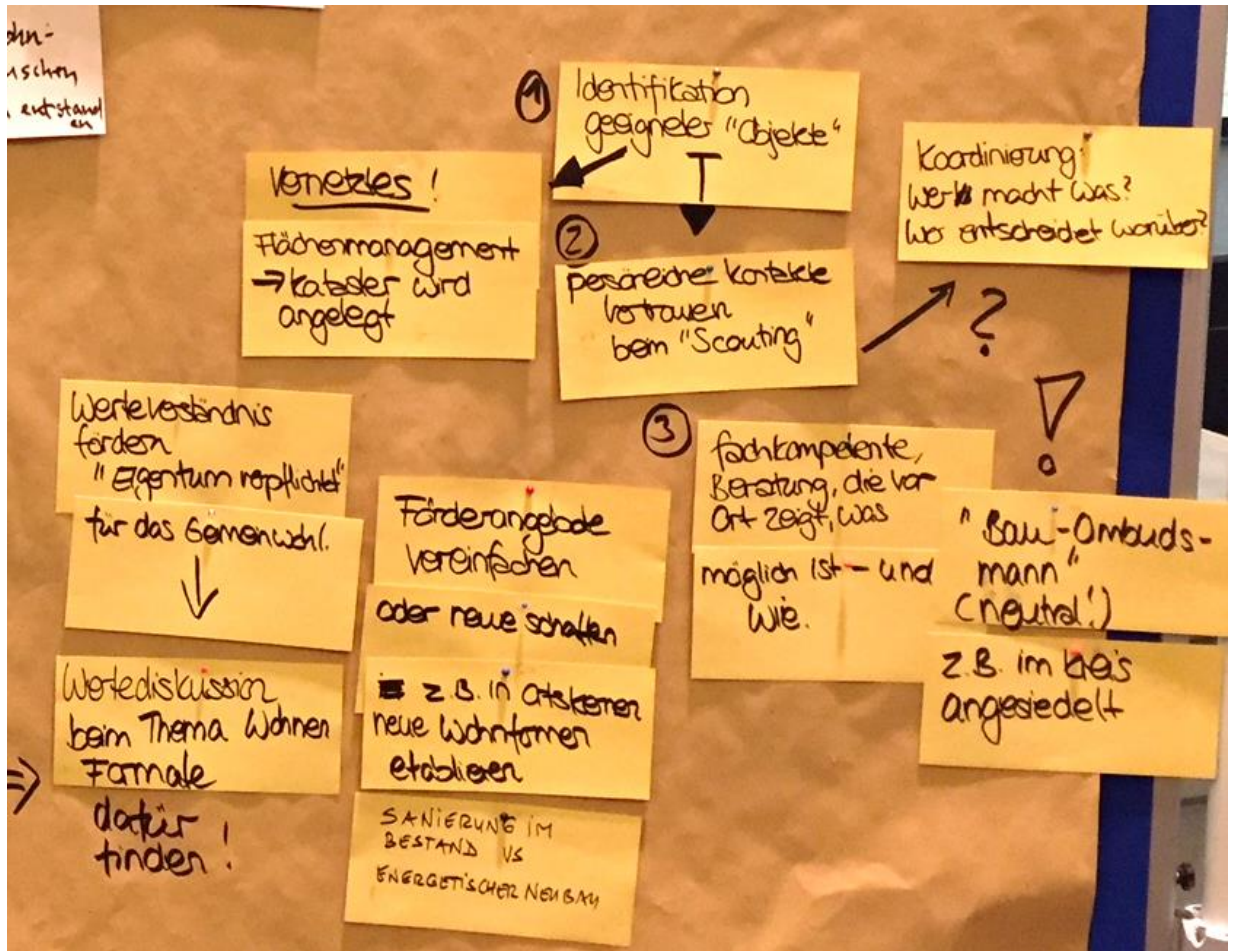 entstand
en
①
Identifikation
geeigneter "Objekte"
Vernetztes!
Flächenmanagement
→ Kataster wird
angelegt
②
persönliche Kontakte
Vertrauen
beim "Scouting"
Koordinierung:
Wer macht was?
Wer entscheidet worüber?
?
!
Werteverständnis
fördern
"Eigentum verpflichtet"
für das Gemeinwohl.
↓
Wertediskussion
beim Thema Wohnen
⇒ Formate
dafür
finden!
Förderangebote
vereinfachen
oder neue schaffen
z.B. in Ortskernen
neue Wohnformen
etablieren
SANIERUNG IM
BESTAND VS
ENERGETISCHER NEUBAU
③
fachkompetente,
Beratung, die vor
Ort zeigt, was
möglich ist - und
wie.
"Bau-Ombuds-
mann"
(neutral!)
z.B. im Kreis
angesiedelt